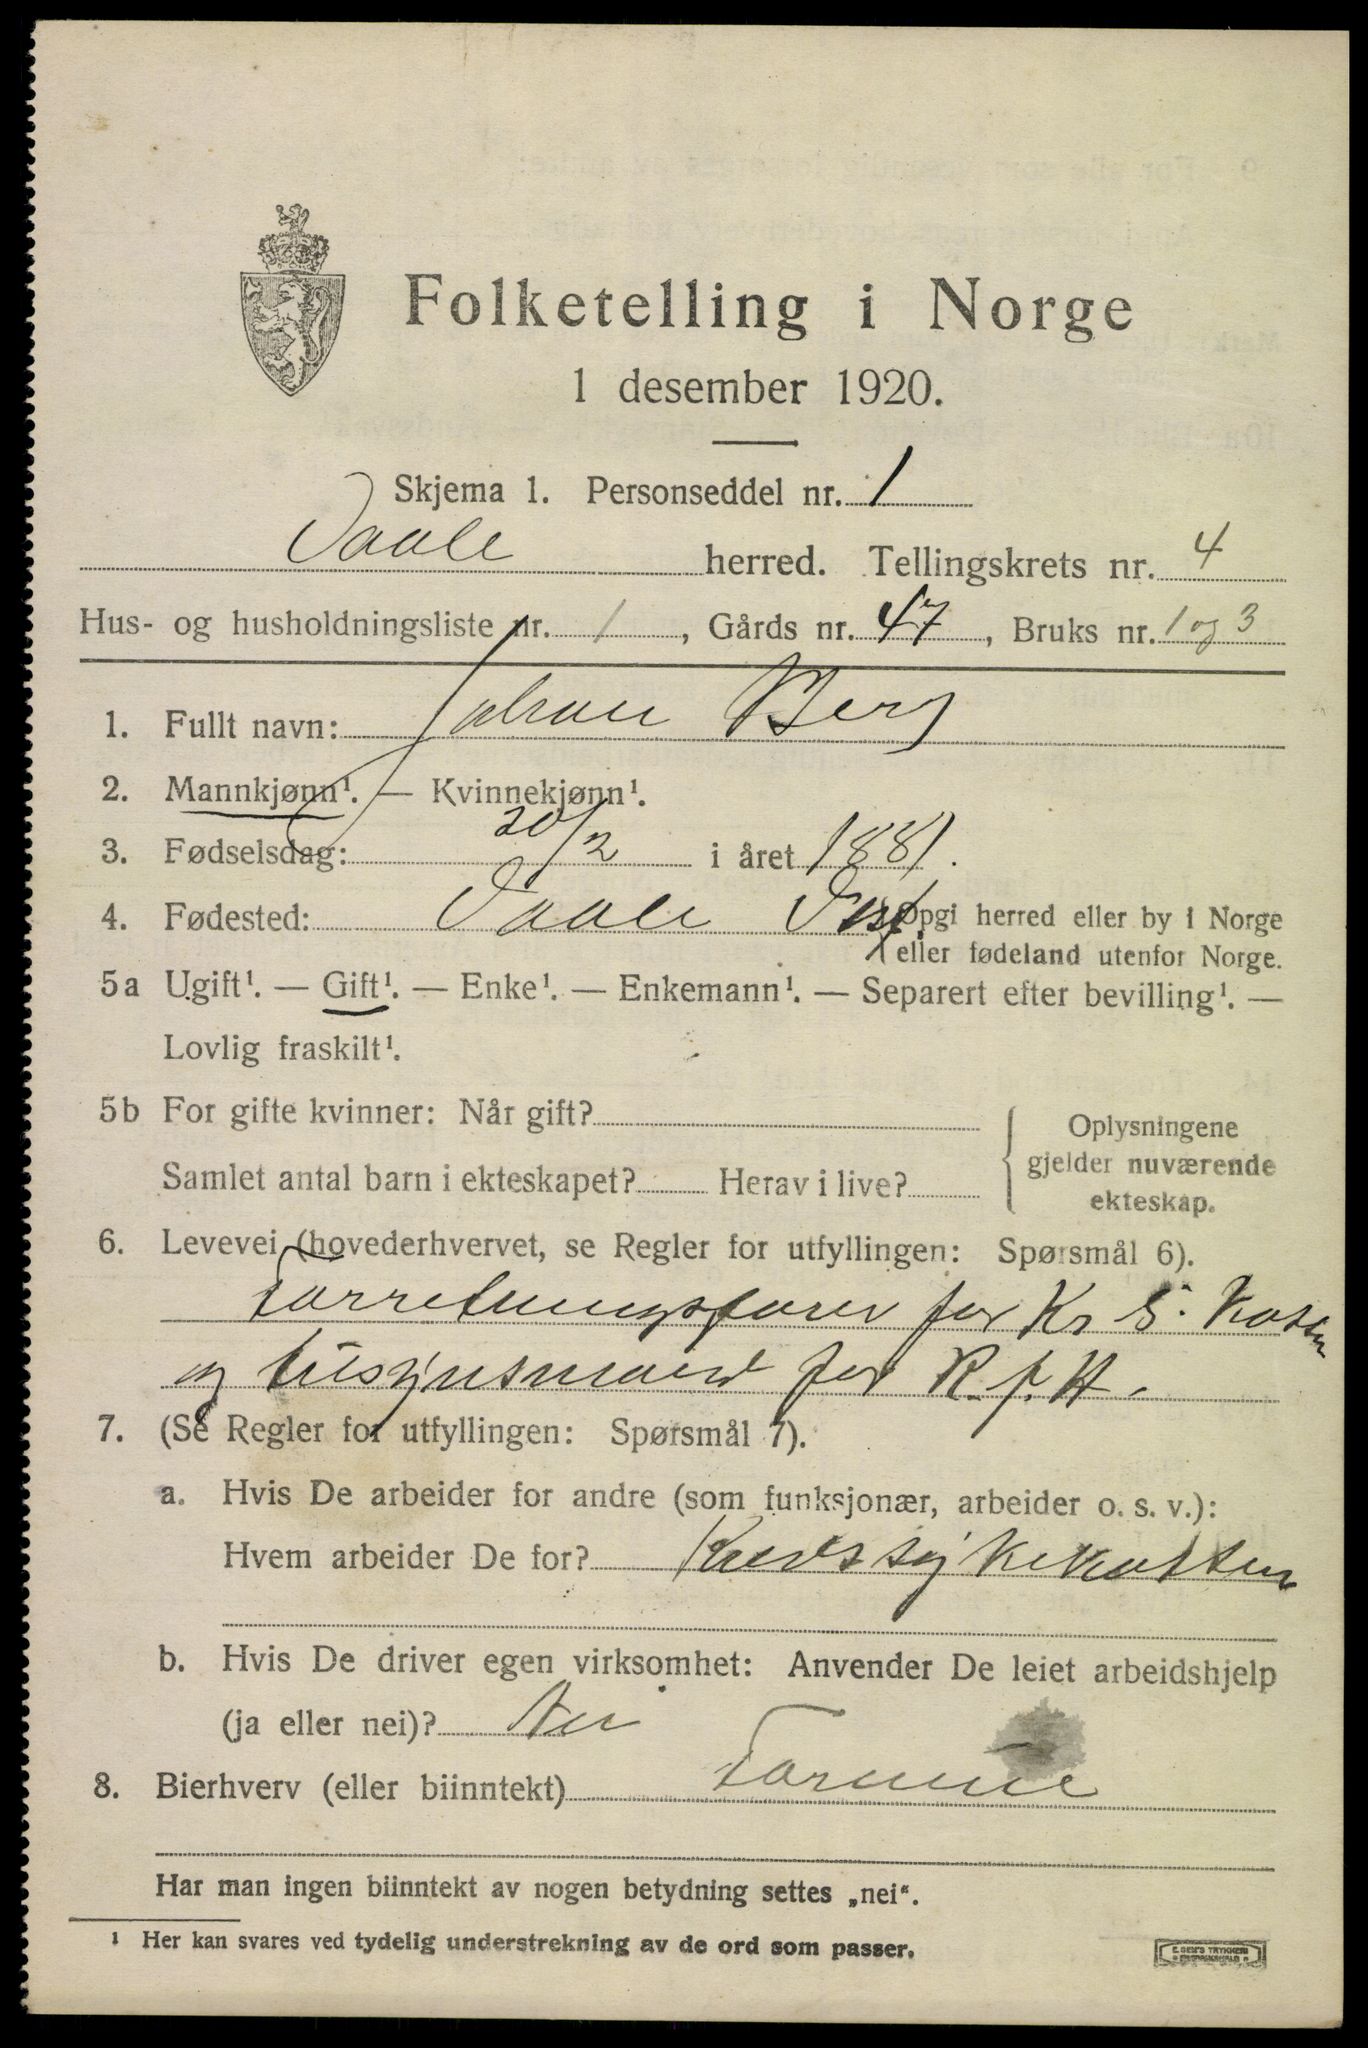 Folketelling i Norge
1 desember 1920.
Skjema 1. Personseddel nr. 1
Vaale herred. Tellingskrets nr. 4
Hus- og husholdningsliste nr. 1, Gårds nr. 47, Bruks nr. 1 og 3
1. Fullt navn: Johan Berg
2. Mannkjønn¹. — Kvinnekjønn¹.
3. Fødselsdag: 20/2 i året 1881.
4. Fødested: Vaale Vestf. Opgi herred eller by i Norge
eller fødeland utenfor Norge.
5a Ugift¹. — Gift¹. — Enke¹. — Enkemann¹. — Separert efter bevilling¹. —
Lovlig fraskilt¹.
5b For gifte kvinner: Når gift?
Samlet antal barn i ekteskapet? Herav i live?
Oplysningene
gjelder nuværende
ekteskap.
6. Levevei (hovederhvervet, se Regler for utfyllingen: Spørsmål 6).
Forretningsfører for Kr S. Kassen
og tilsynsmand for R.f.H.
7. (Se Regler for utfyllingen: Spørsmål 7).
a. Hvis De arbeider for andre (som funksjonær, arbeider o. s. v.):
Hvem arbeider De for? Kredssykekassen
b. Hvis De driver egen virksomhet: Anvender De leiet arbeidshjelp
(ja eller nei)? Nei
8. Bierhverv (eller biinntekt)
Har man ingen biinntekt av nogen betydning settes „nei“.
¹ Her kan svares ved tydelig understrekning av de ord som passer.